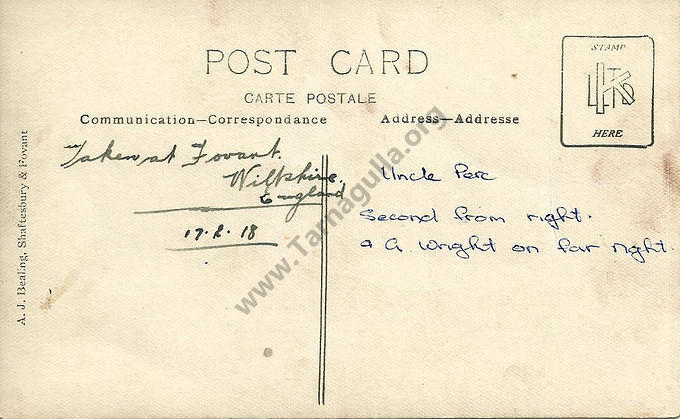 POST CARD
CARTE POSTALE
Communication—Correspondance
Address—Adresse
STAMP
HERE
Taken at Fovant.
Wiltshire.
England
17.2.18
Uncle Perc
Second from right.
& G. Wright on far right.
A. J. Bealing, Shaftesbury & Fovant
www.Tarnagulla.org